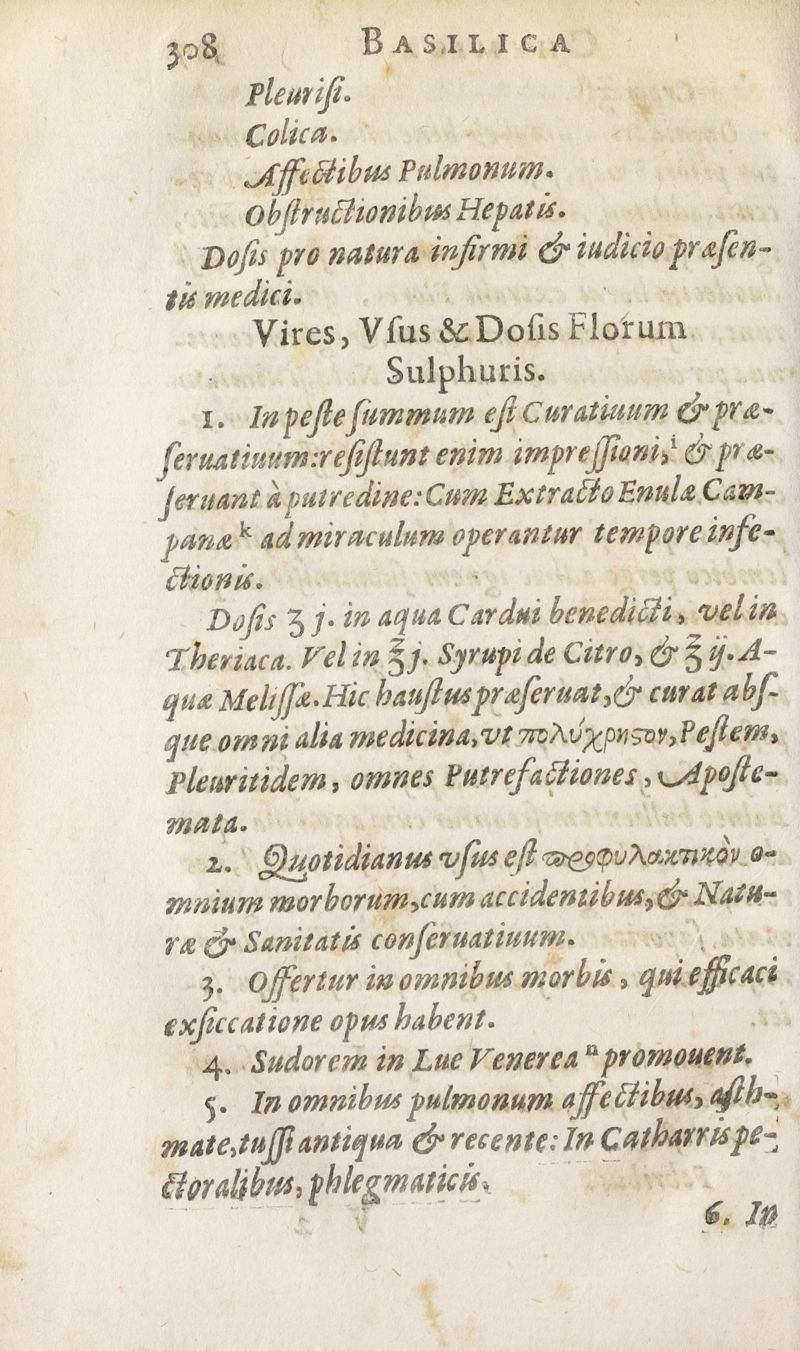 308 BASILICA
Pleurisi.
Colica.
Affectibus Pulmonum.
Obstructionibus Hepatis.
Dosis pro natura infirmi & iudicio præsen-
tis medici.
Vires, Vsus & Dosis Florum
Sulphuris.
1. In peste summum est Curatiuum & præ-
seruatiuum: resistunt enim impressioni,ⁱ & præ-
seruant à putredine: Cum Extracto Enulæ Cam-
panæ ᵏ ad miraculum operantur tempore infe-
ctionis.
Dosis ʒ j. in aqua Cardui benedicti, vel in
Theriaca. Vel in ℥ j. Syrupi de Citro, & ℥ ij. A-
quæ Melissæ. Hic haustus præseruat, & curat abs-
que omni alia medicina, vt πολύχρηϛον, Pestem,
Pleuritidem, omnes Putrefactiones, Aposte-
mata.
2. Quotidianus vsus est προφυλακτικὸν o-
mnium morborum, cum accidentibus, & Natu-
ræ & Sanitatis conseruatiuum.
3. Offertur in omnibus morbis, qui efficaci
exsiccatione opus habent.
4. Sudorem in Lue Venerea ⁿ promouent.
5. In omnibus pulmonum affectibus, asth-
mate, tussi antiqua & recente: In Catharris pe-
ctoralibus, phlegmaticis.
6. In